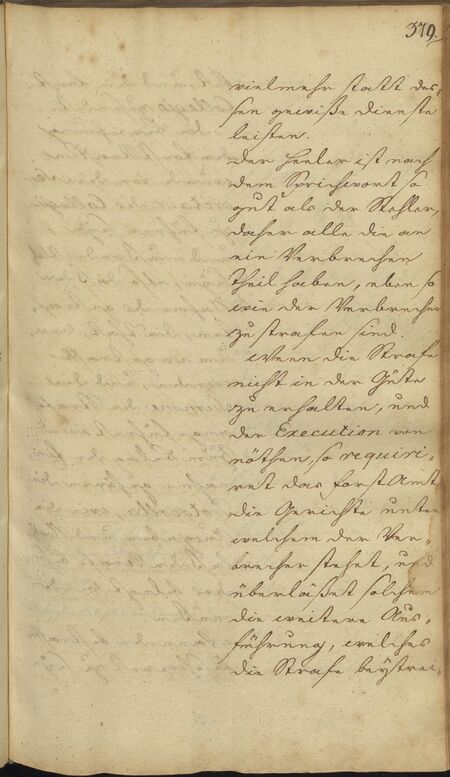 379.
vielmehr statt des-
sen gewiße Dienste
leisten.
Der Heeler ist nach
dem Sprichwort so
gut als der Stehler,
daher alle die an
ein Verbrechen
Theil haben, eben so
wie der Verbrecher
zu strafen sind.
Wenn die Strafe
nicht in der Güte
zu erhalten, und
der Execution von
nöthen, so requiri-
ret das Forst Amt
die Gerichte unter
welchem der Ver-
brecher stehet, und
überläßet solchen
die weitere Aus-
führung, welches
die Strafe beÿtrei-